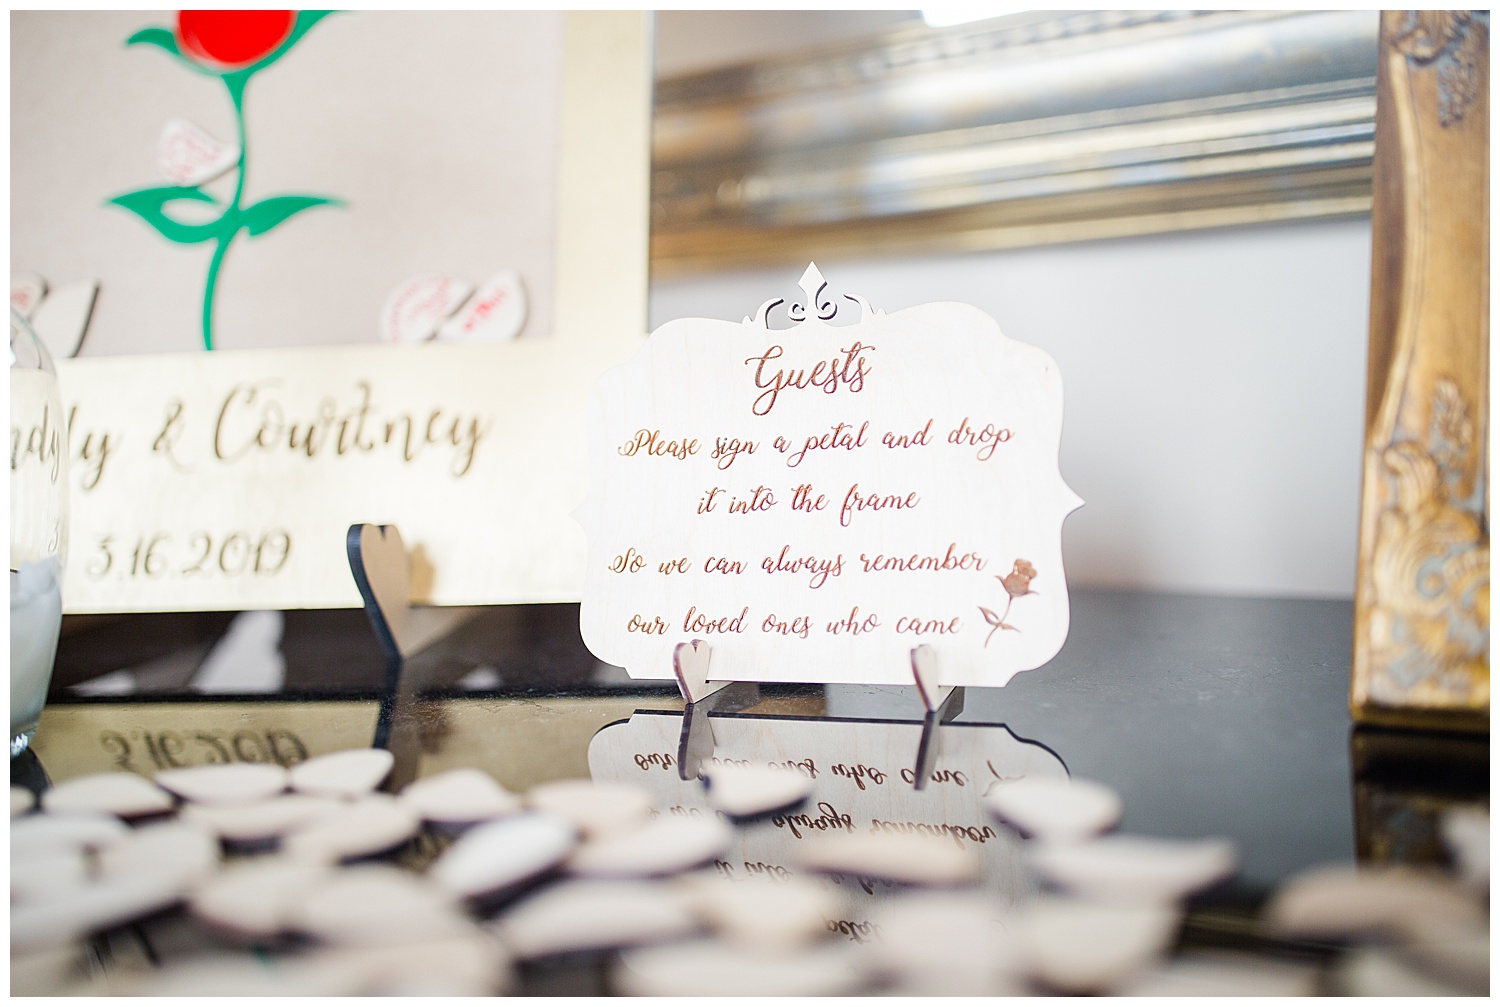 & Courtney
3.16.2019
Guests
Please sign a petal and drop
it into the frame
So we can always remember
our loved ones who came